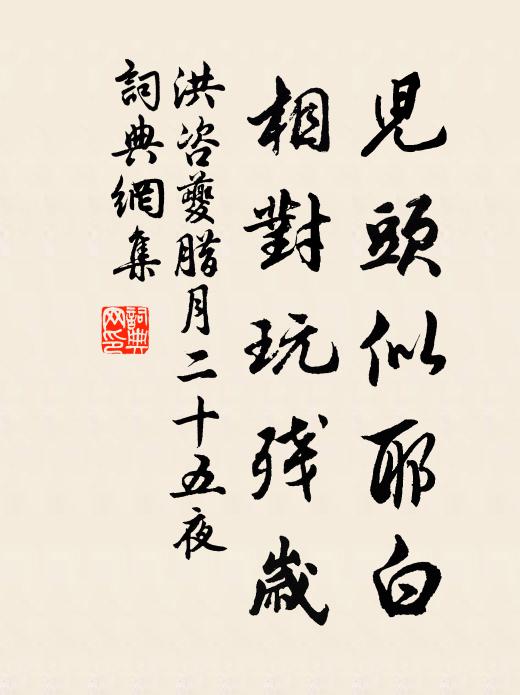 児頭似耶白
相對玩残歲
洪咨夔腊月二十五夜
詞典網集
詞典网印